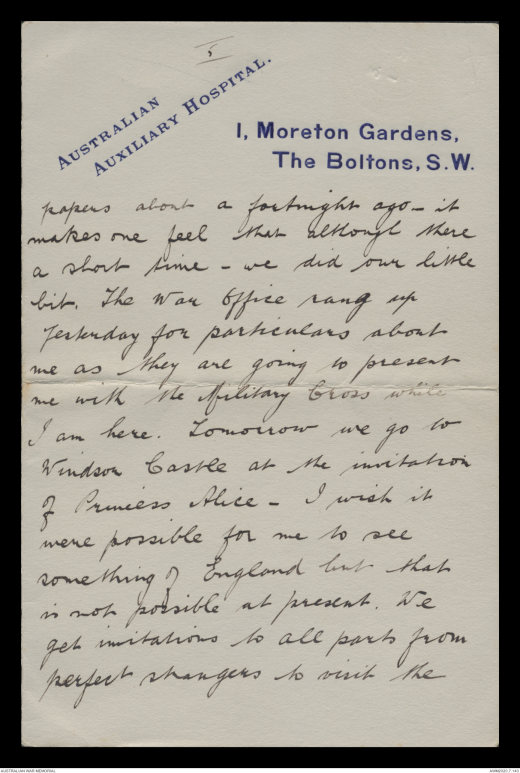 5
AUSTRALIAN
AUXILIARY HOSPITAL.
1, Moreton Gardens,
The Boltons, S.W.
papers about a fortnight ago – it
makes one feel that although there
a short time – we did our little
bit. The War Office rang up
Yesterday for particulars about
me as they are going to present
me with the Military Cross while
I am here. Tomorrow we go to
Windsor Castle at the invitation
of Princess Alice – I wish it
were possible for me to see
something of England but that
is not possible at present. We
get invitations to all parts from
perfect strangers to visit the
AUSTRALIAN WAR MEMORIAL